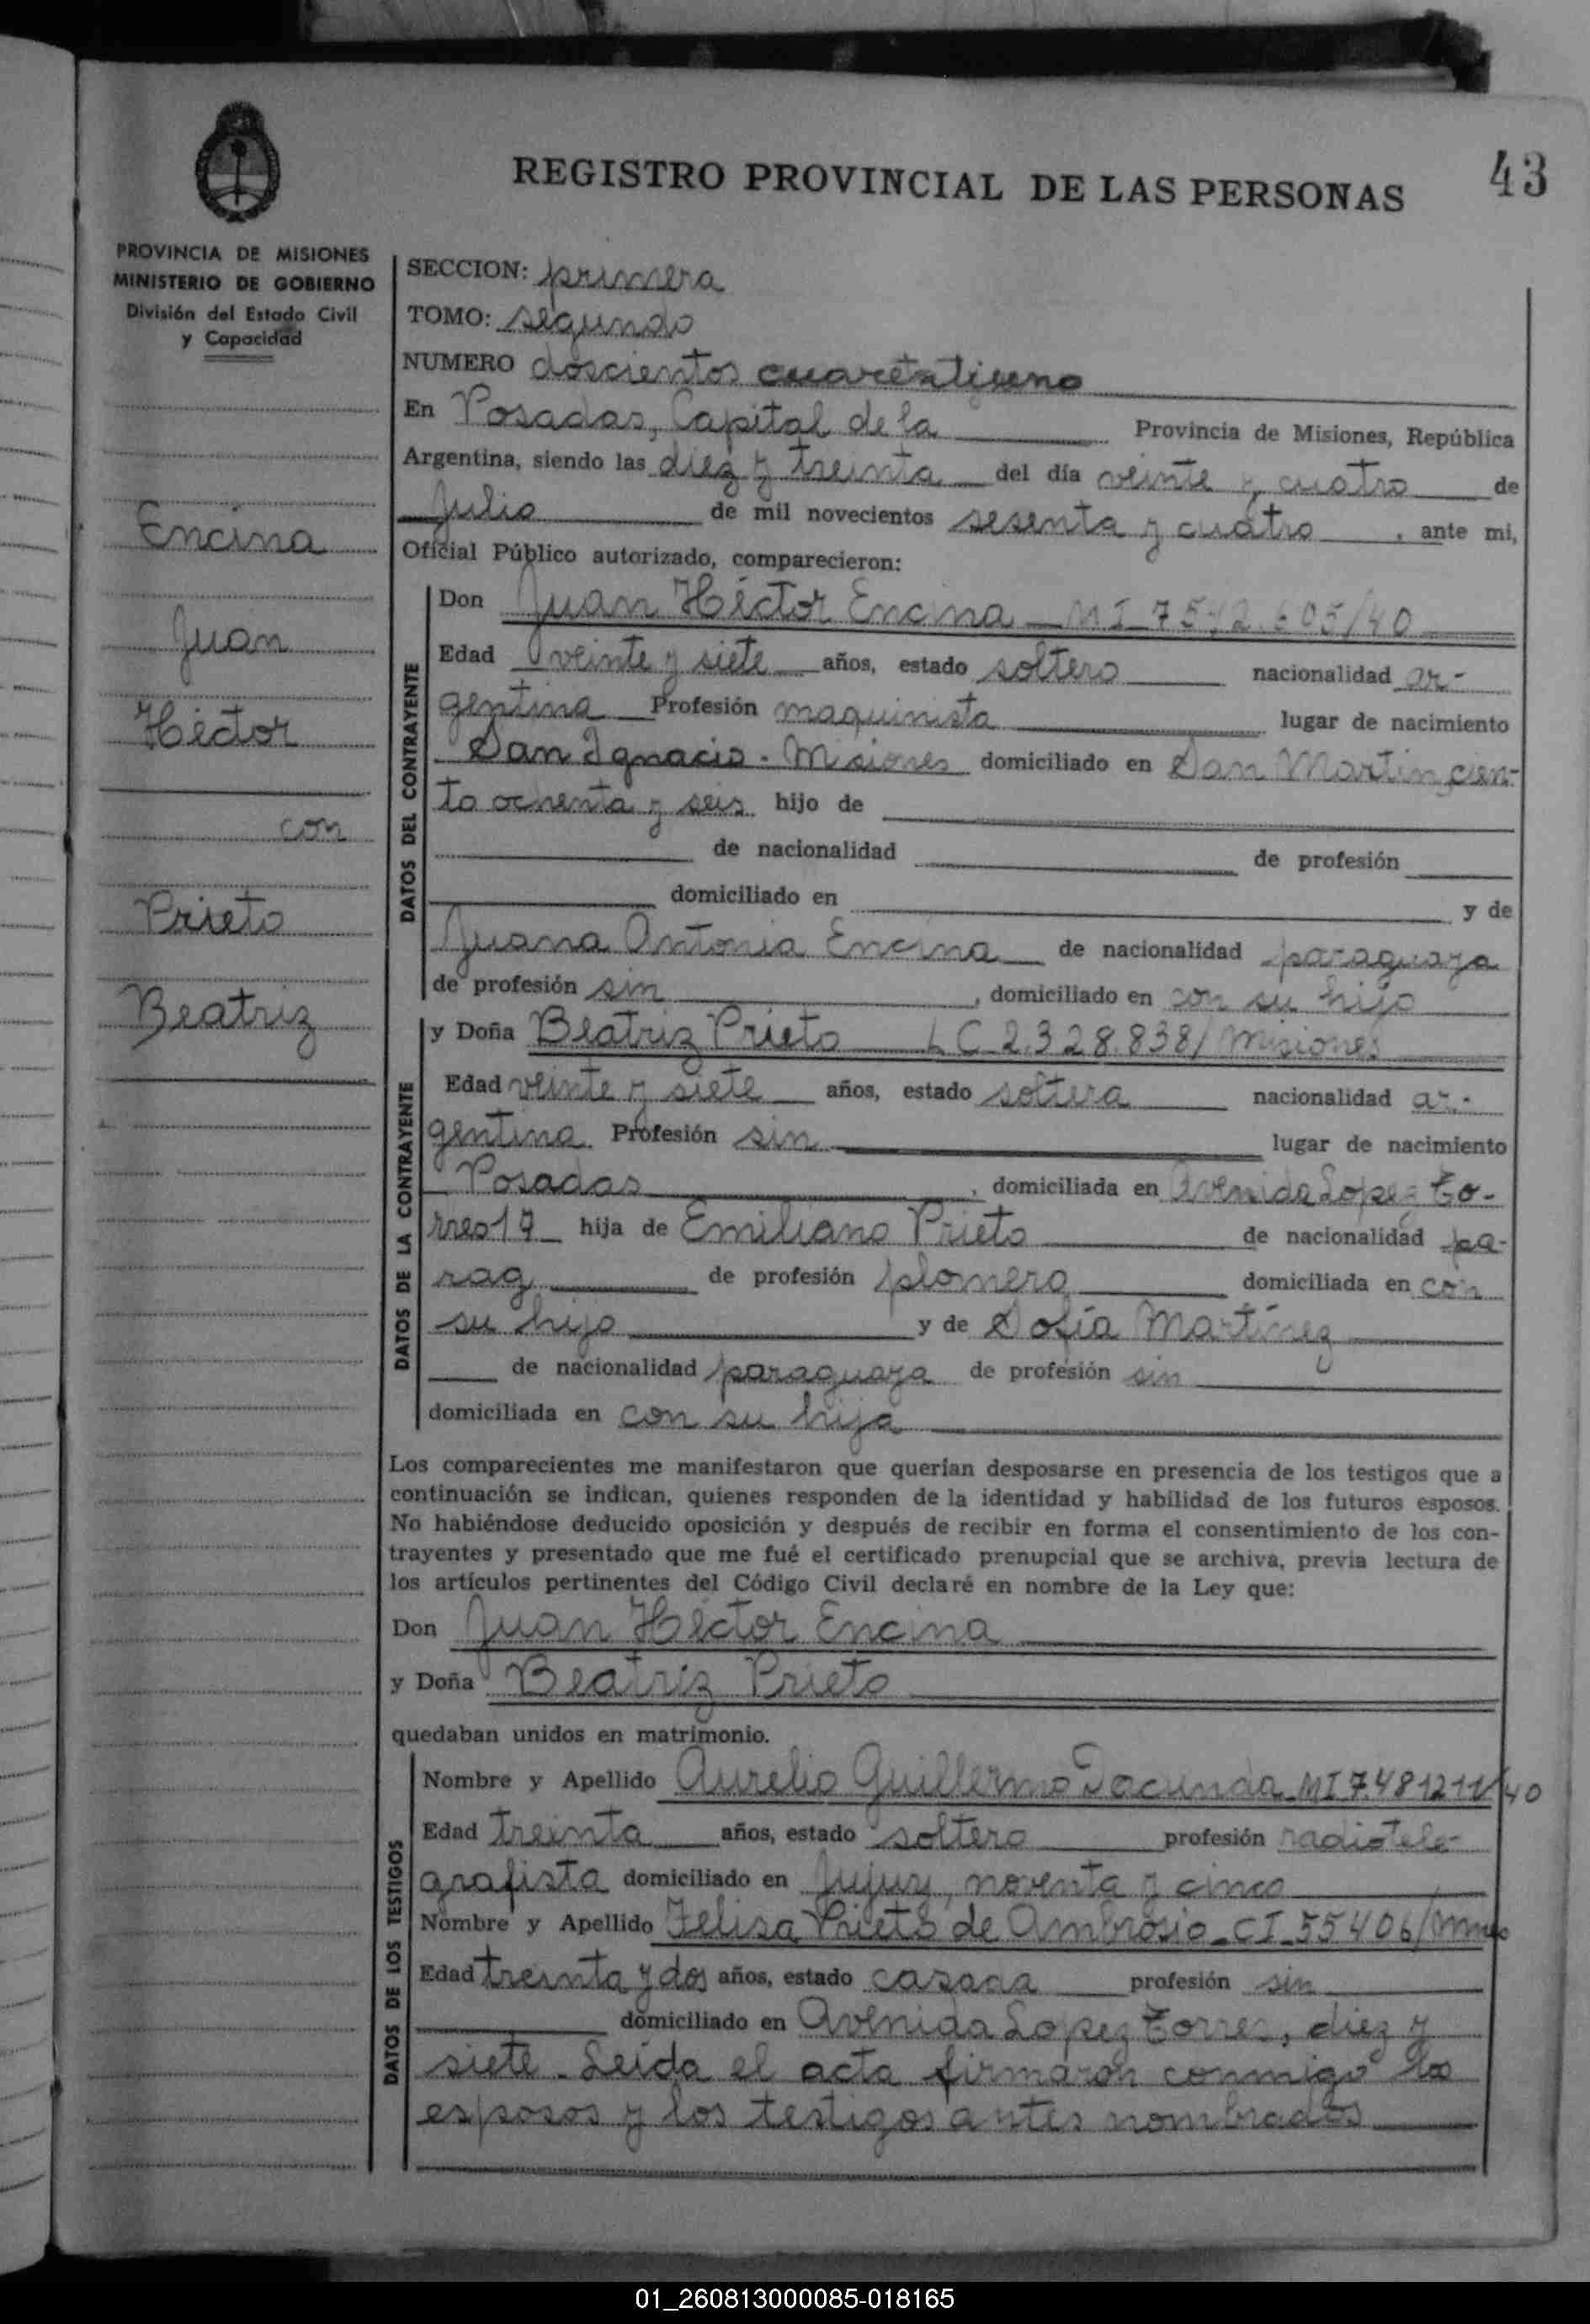 43
REGISTRO PROVINCIAL DE LAS PERSONAS
PROVINCIA DE MISIONES
MINISTERIO DE GOBIERNO
División del Estado Civil
y Capacidad
Encina
Juan
Héctor
con
Prieto
Beatriz
SECCION: primera
TOMO: segundo
NUMERO doscientos cuarentiuno
En Posadas, Capital de la Provincia de Misiones, República
Argentina, siendo las diez y treinta del día veinte y cuatro de
Julio de mil novecientos sesenta y cuatro, ante mi,
Oficial Público autorizado, comparecieron:
DATOS DEL CONTRAYENTE
Don Juan Héctor Encina MI 7542.605/40
Edad veinte y siete años, estado soltero nacionalidad ar-
gentina Profesión maquinista lugar de nacimiento
San Ignacio - Misiones domiciliado en San Martin cien-
to ochenta y seis hijo de
de nacionalidad de profesión
domiciliado en y de
Juana Antonia Encina de nacionalidad paraguaya
de profesión sin, domiciliado en con su hijo
DATOS DE LA CONTRAYENTE
y Doña Beatriz Prieto LC 2.328.838/Misiones
Edad veinte y siete años, estado soltera nacionalidad ar-
gentina Profesión sin lugar de nacimiento
Posadas, domiciliada en Avenida Lopez To-
rres 17 hija de Emiliano Prieto de nacionalidad pa-
rag de profesión plomero domiciliada en con
su hijo y de Sofía Martínez
de nacionalidad paraguaya de profesión sin
domiciliada en con su hija
Los comparecientes me manifestaron que querían desposarse en presencia de los testigos que a
continuación se indican, quienes responden de la identidad y habilidad de los futuros esposos.
No habiéndose deducido oposición y después de recibir en forma el consentimiento de los con-
trayentes y presentado que me fué el certificado prenupcial que se archiva, previa lectura de
los artículos pertinentes del Código Civil declaré en nombre de la Ley que:
Don Juan Héctor Encina
y Doña Beatriz Prieto
quedaban unidos en matrimonio.
DATOS DE LOS TESTIGOS
Nombre y Apellido Aurelio Guillermo MI 7.481211/40
Edad treinta años, estado soltero profesión radiotele-
grafista domiciliado en Jujuy, noventa y cinco
Nombre y Apellido Felisa Prieto de Ambrosio - CI 55406/
Edad treinta y dos años, estado casada profesión sin
domiciliado en Avenida Lopez Torres, diez y
siete - Leída el acta firmaron conmigo los
esposos y los testigos antes nombrados
01_260813000085-018165